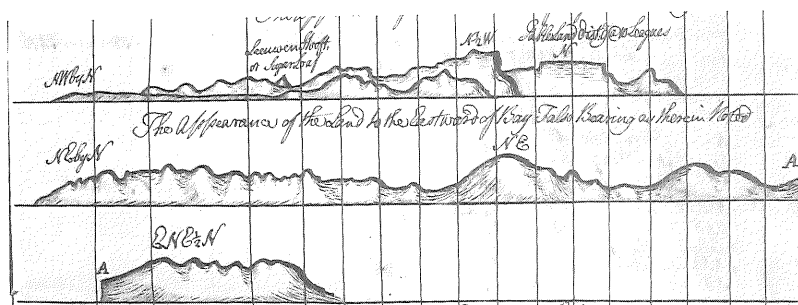 Leeuwen Hooft
or Sugar Loaf
N½W
distce 10 Leagues
N
NW by N
The Appearance of the Land to the Eastward of Bay Falso Bearing as therein Noted
NE by N
NE
A
ENE½N
A